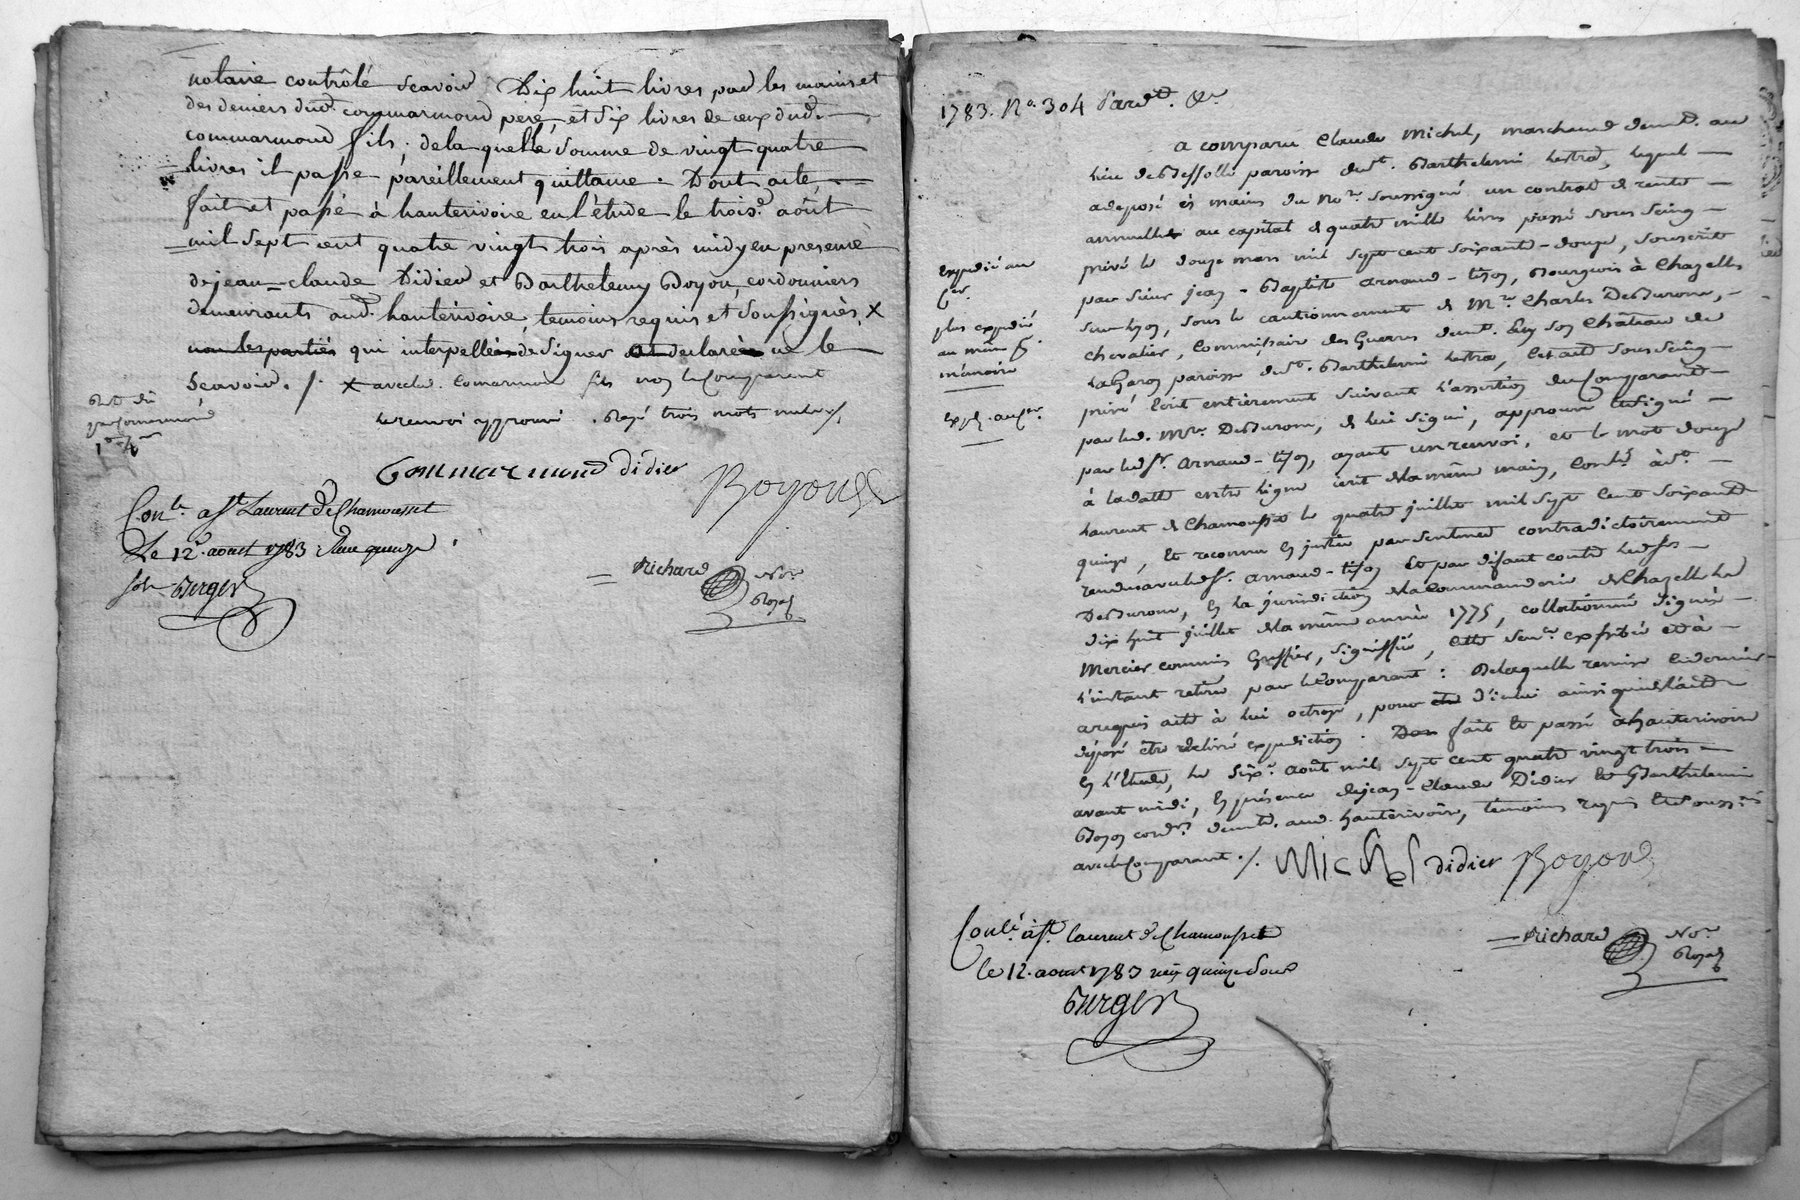 notaire contrôlé scavoir Dix huit livres par les mains et
des deniers dud. commarmond pere, et six livres de ceux dud.
commarmond fils, de la quelle somme de vingt quatre
livres il passe pareillement quittance. Dont acte,
fait et passé à hauterivoire en l'étude le trois.e août
mil sept cent quatre vingt trois après midy en presence
de jean=claude Didier et Barthelemy Boyon, cordonniers
demeurants aud. hauterivoire, temoins requis et soussignés, x
non les parties qui interpellés de signer ont declaré ne le
scavoir. /. x avec led. Comarmond fils non le Comparant
le renvoi approuvé. Rayé trois mots nuls ./.
Commarmond didier
Boyon
Con.lé a S.t Laurent de Chamousset
Le 12. aoust 1783 Reçu quinze
sols Berger
Richard No.re
Royal
1783. N.o 304
a comparu Claude Michel, marchand demt. au
lieu de Bessolle paroisse de S.t Barthelemi Lestra, lequel
a déposé ès mains du No.re soussigné un contrat de rente
annuelle au capital de quatre mille livres passé sous seing
privé le douze mars mil sept cent soixante-douze, souscrit
par sieur jean-Baptiste arnaud-tison, Bourgeois à Chazelles
sur Lyon, sous le cautionnement de M.re Charles DeBurone,
chevalier, Commissaire des Guerres demt. en son Château de
LaGaron paroisse de S.t Barthelemi Lestra, led. acte sous seing
privé écrit entièrement suivant l'assertion du Comparant
par led. M.re DeBurone, de lui signé, approuvé et signé
par led. S.r arnaud-tison, ayant un renvoi, et le mot douze
à la datte entre ligne écrit de la même main, Contlé à S.t
Laurent de Chamousset le quatre juillet mil sept cent soixante
quinze, et reconnu en justice par sentence contradictoirement
rendue avec led. S.r arnaud-tison et par défaut contre led. S.r
DeBurone, en la jurisdiction de la Commanderie de Chazelle le
dix huit juillet de la même année 1775, collationné signé
Mercier commis Greffier, signiffiée, cette sen.ce exhibée et à
l'instant retirée par le Comparant: De laquelle remise ce dernier
a requis acte à lui octroyé, pour d'icelui ainsi que de l'acte
déposé être délivré expédition. fait et passé à hauterivoire
en l'Etude, le six.e août mil sept cent quatre vingt trois
avant midi, en présence de jean-Claude Didier et Barthelemi
Boyon cord.rs demt. aud. hauterivoire, témoins requis et soussignés
avec le Comparant ./. Michel didier Boyon
Expédié au
plus expédié
au même
mémoire
Con.lé à S.t laurent de Chamousset
le 12. aoust 1783 reçu quinze sous
Berger
Richard No.re
Royal